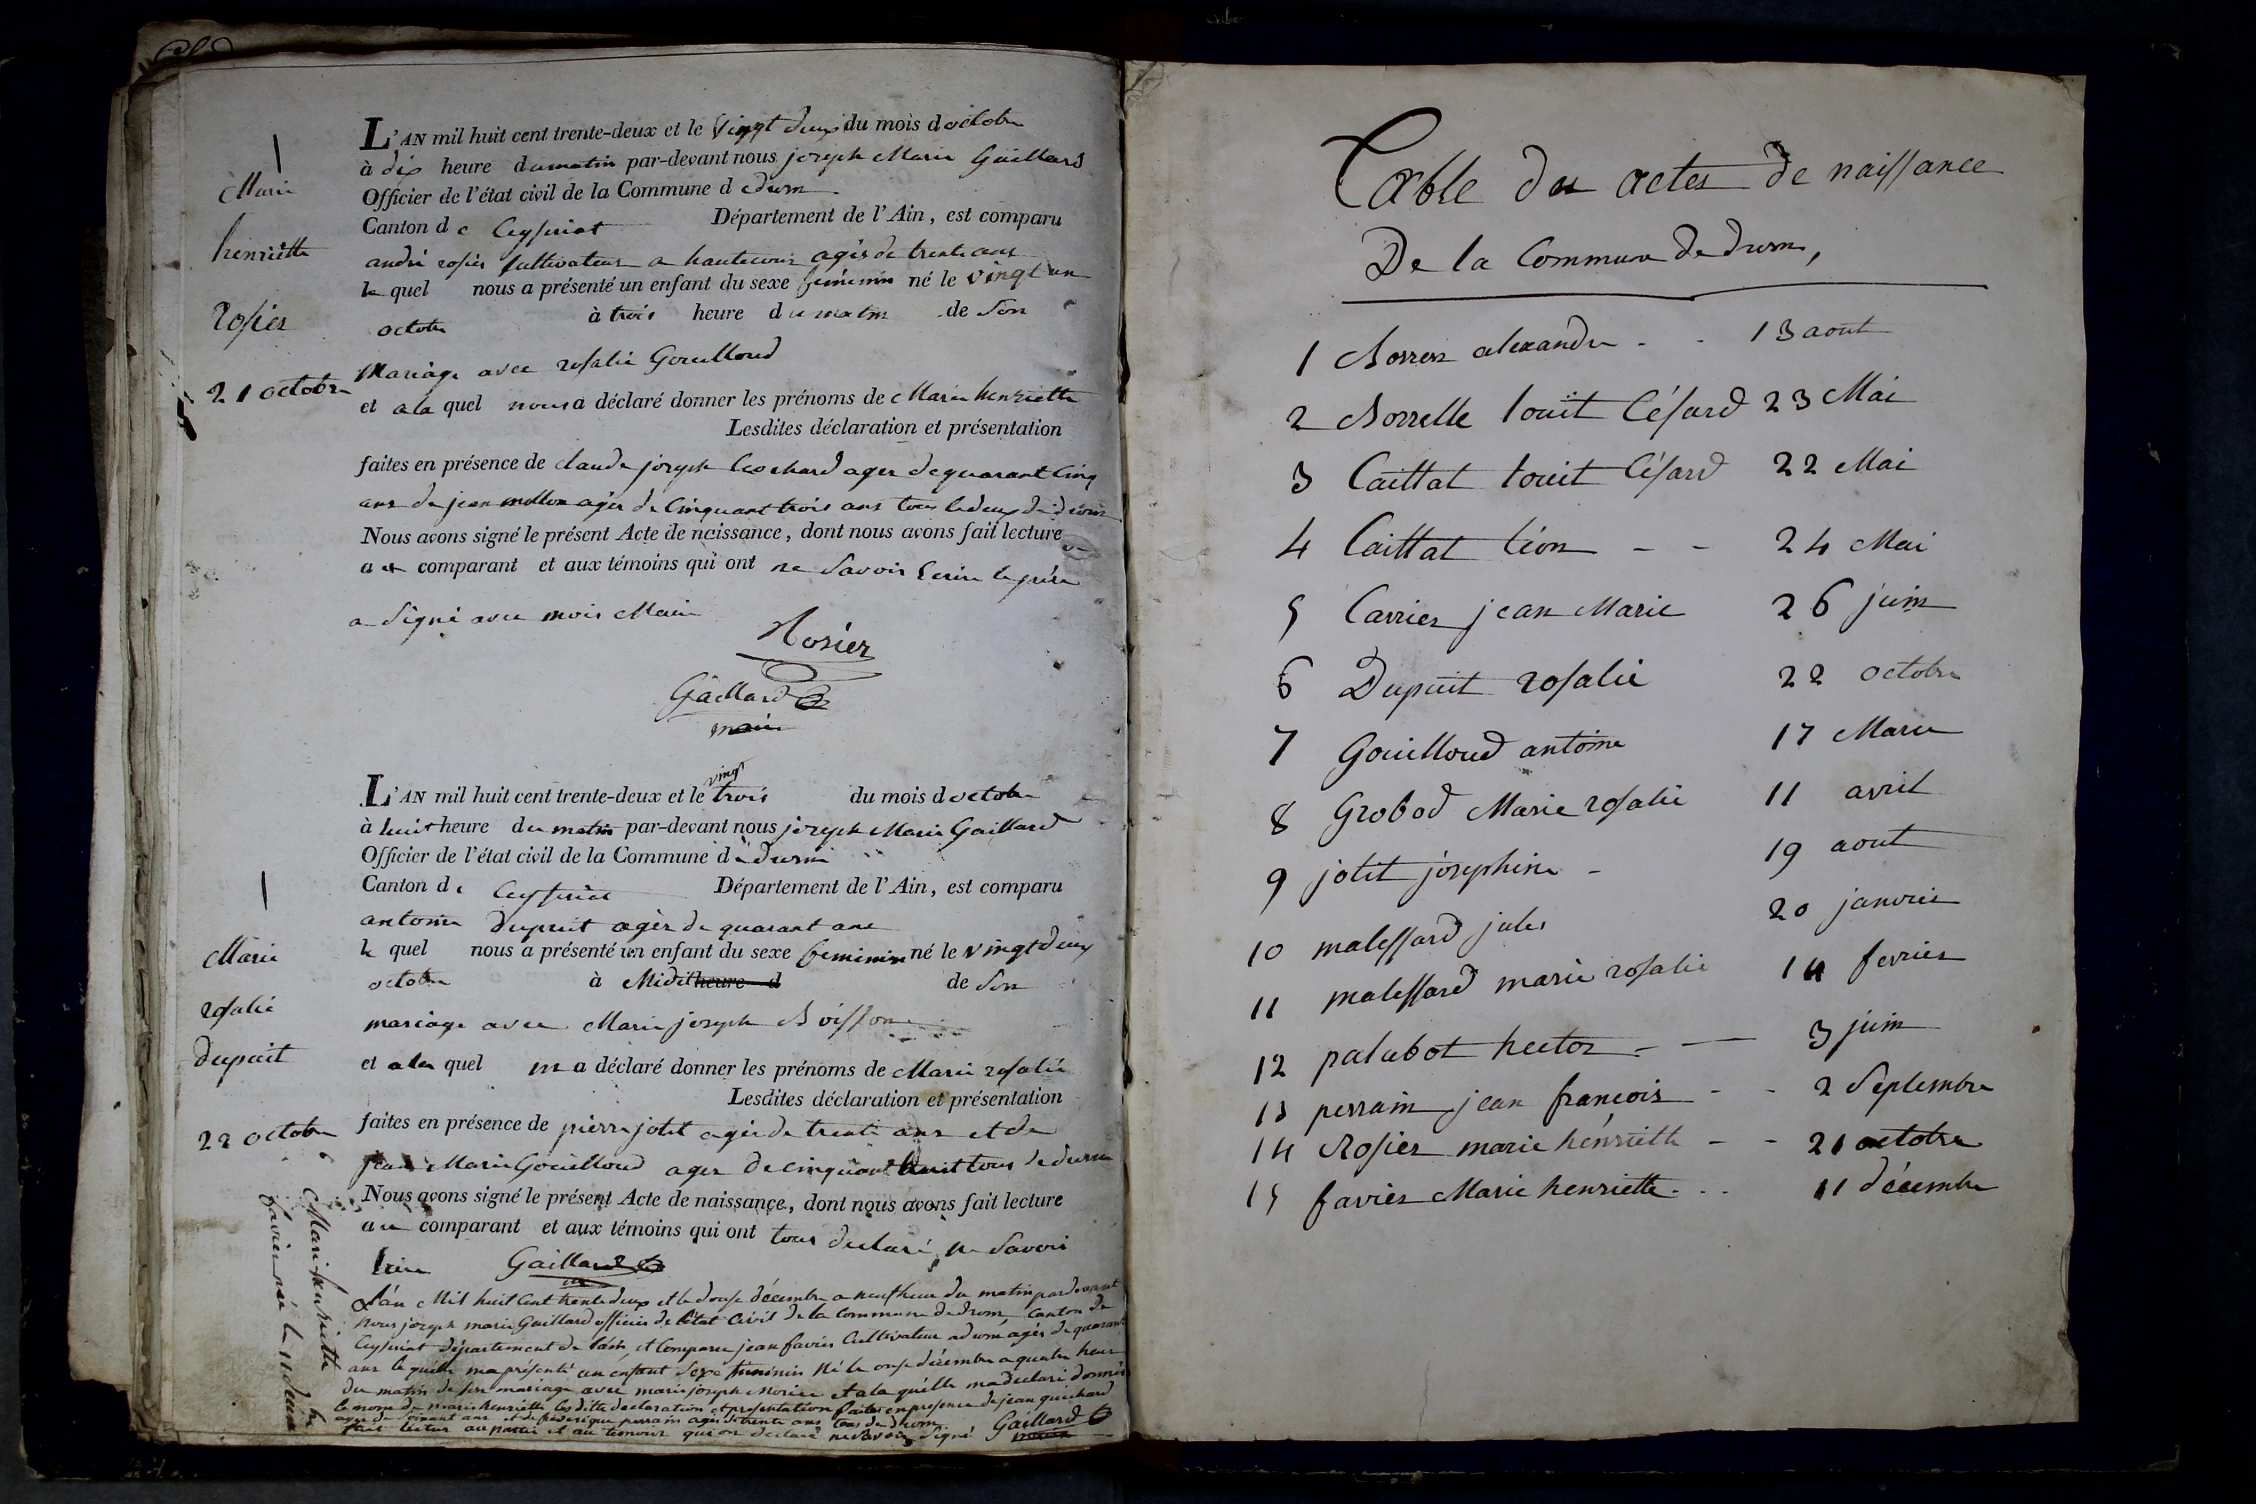 Marie
henriette
rosier
21 octobre
L'AN mil huit cent trente-deux et le vingt deux du mois d octobre
à dix heure du matin par-devant nous joseph Marie Gaillard
Officier de l'état civil de la Commune d drom
Canton d e Ceyseriat Département de l'Ain, est comparu
andré rosier Cultivateur a hautecour agés de trente ans
le quel nous a présenté un enfant du sexe feminin né le vingt un
octobre à trois heure du matin de son
Mariage avec rosalie Gouilloud
et a la quel nous a déclaré donner les prénoms de Marie henriette
Lesdites déclaration et présentation
faites en présence de claude joseph Cochard ager de quarant Cinq
ans de jean millon ager de Cinquant trois ans tous le deux de drom
Nous avons signé le présent Acte de naissance, dont nous avons fait lecture
au comparant et aux témoins qui ont ne savoir Ecrire le père
a signé avec mois Maire
Rosier
Gaillard
maire
Marie
rosalie
dupuit
22 octobre
L'AN mil huit cent trente-deux et le vingt trois du mois d octobre
à huit heure du matin par-devant nous joseph Marie Gaillard
Officier de l'état civil de la Commune de drom
Canton de Ceyseriat Département de l'Ain, est comparu
antoine dupuit agér de quarant ans
le quel nous a présenté un enfant du sexe feminin né le vingt deux
octobre à Midit heure d de son
mariage avec Marie joseph Boisson
et a la quel m a déclaré donner les prénoms de Marie rosalie
Lesdites déclaration et présentation
faites en présence de pierre jotet agér de trente ans et de
jean Marie Gouilloud ager de cinquant huit tous de drom
Nous avons signé le présent Acte de naissance, dont nous avons fait lecture
au comparant et aux témoins qui ont tous declaré ne savoir
Gaillard
Marie henriette
favier née le 11 decem
L'an Mil huit Cent trente deux et le douse décembre a neuf heure du matin pardevant
nous joseph marie Gaillard officier de l'état Civil de la Commune de drom Canton de
Ceyseriat département de l'ain, et Comparu jean favier Cultivateur a drom agér de quarant
ans le quelle ma présenté un enfant sexe feminin Né le onse décembre a quatre heur
du matin de son mariage avec marie joseph et a la quelle ma declaré donner
le nome de marie henriette les ditte declaration et presentation faites en presence de jean guichard
ager de soisant ans et de frederique perrain ager de trente ans tous de drom
fait lectur au partie et au temoins qui on declaré ne savoir signé Gaillard
maire
Table des actes de naissance
De la Commune de drom,
1 Borrer alexandre - - 13 aout
2 Borrelle louit Césard 23 Mai
3 Caittat louit Césard 22 Mai
4 Caittat léon - - 24 Mai
5 Carrier jean Marie 26 juin
6 Dupuit rosalie 22 octobre
7 Gouilloud antoine 17 Mars
8 Grobod Marie rosalie 11 avril
9 jotet josephine - 19 aout
10 malessard jules 20 janvier
11 malessard marie rosalie 14 fevrier
12 palabot hector - - 3 juin
13 perrain jean francois - - 2 Septembre
14 Rosier marie henriette - - 21 octobre
15 favier Marie henriette - - - 11 décembre